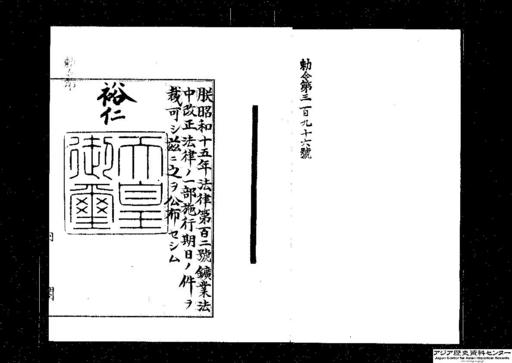 勅令第三百九十六號
朕昭和十五年法律第百二號鑛業法
中改正法律ノ一部施行期日ノ件ヲ
裁可シ茲ニ之ヲ公布セシム
裕仁
天皇
御璽
内閣
アジア歴史資料センター
Japan Center for Asian Historical Records